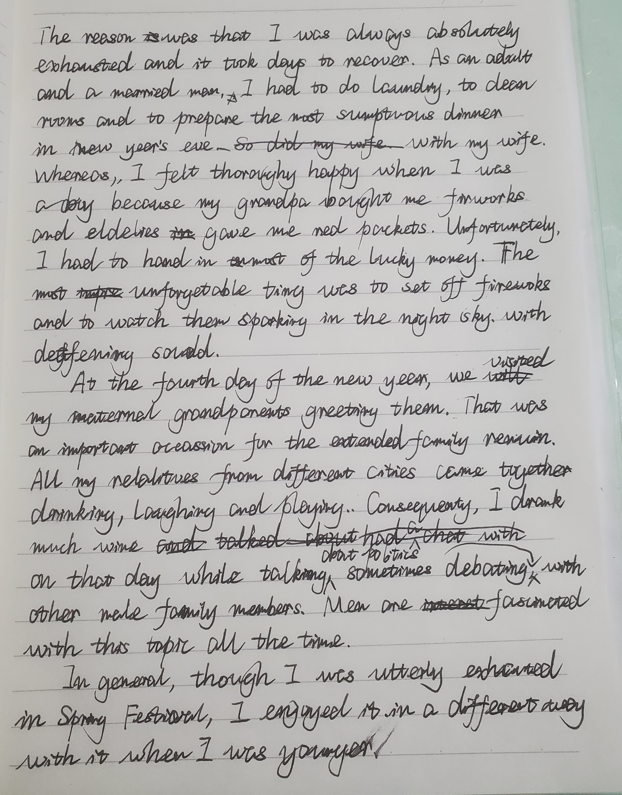 The reason was that I was always absolutely
exhausted and it took days to recover. As an adult
and a married man, I had to do laundry, to clean
rooms and to prepare the most sumptuous dinner
in new year's eve with my wife.
Whereas, I felt thoroughy happy when I was
a boy because my grandpa bought me fireworks
and eldelies gave me red packets. Unfortunately,
I had to hand in most of the lucky money. The
most unforgetable ting was to set off fireworks
and to watch them sparking in the night sky. with
deaffening sound.
At the fourth day of the new year, we visited
my maternal grandparents greeting them. That was
an important occassion for the extended family reunion.
All my relalitves from different cities came together
drinking, laughing and playing.. Consequenty, I drank
much wine
on that day while talking about politics sometimes debating with
other male family members. Men are fascinated
with this topic all the time.
In general, though I was utterly exhausted
in Spring Festival, I enjoyed it in a different way
with it when I was younger.